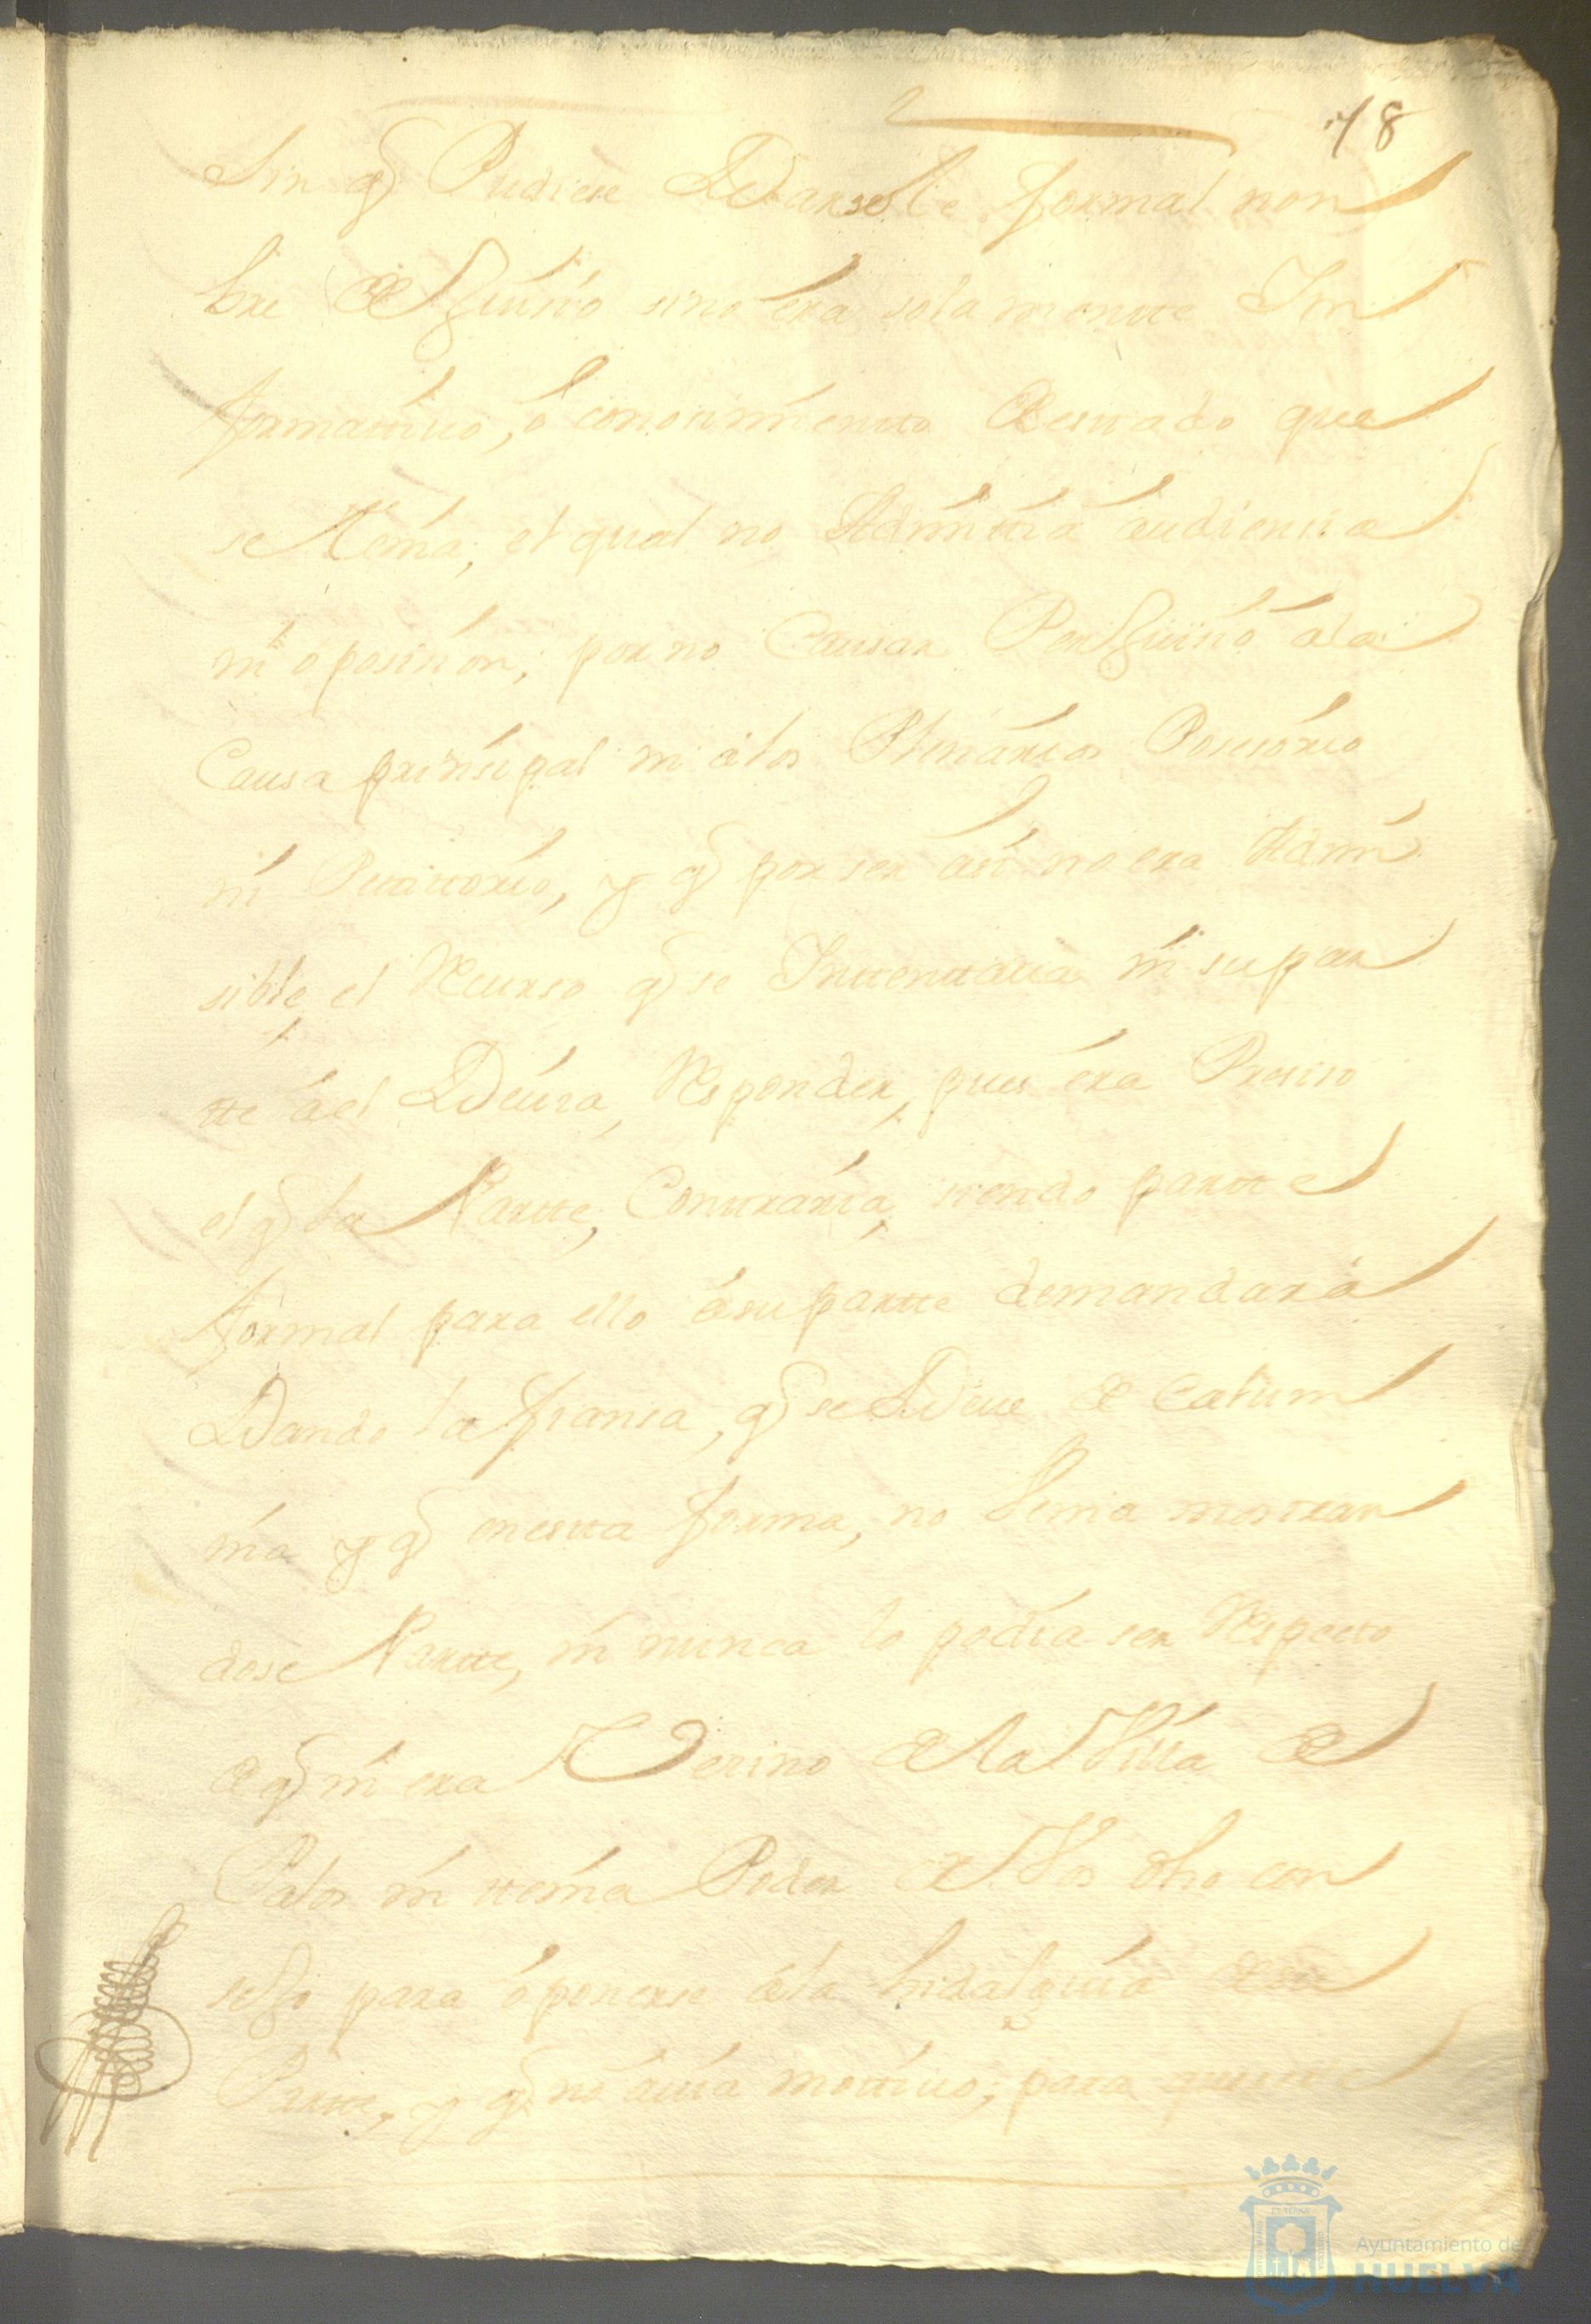 18
Sin q̃ Pudiese Darsele formal nom
bre de Juisio sino era solamentte In
formattiuo, ó conosimientto de esttado que
se ttenia, el qual no Admittia audiensia
ni oposision, por no Causar Perjuisio ála
Causa prinsipal ni álos Plenarios Posesorio
ni Petittorio, y q̃ por ser así no era Admi
sible el Recurso q̃ se Inttenttaua ni su par
tte áel Deuia Responder, pues éra Presiso
el q̃ la Partte Conttraria, siendo partte
formal para ello ásu partte demandara
Dando la fiansa, q̃ se Deue de Calum
nia y q̃ en estta forma, no Venia mostran
dose Partte, ni nunca lo podia ser Respecto
de q̃ ni era Vecino de la Villa de
Palos ni ttenia Poder de Vos dho con
sejo para óponerse ála hidalguia de su
Partte, y q̃ no áuia mottiuo, para
Ayuntamiento de
HUELVA